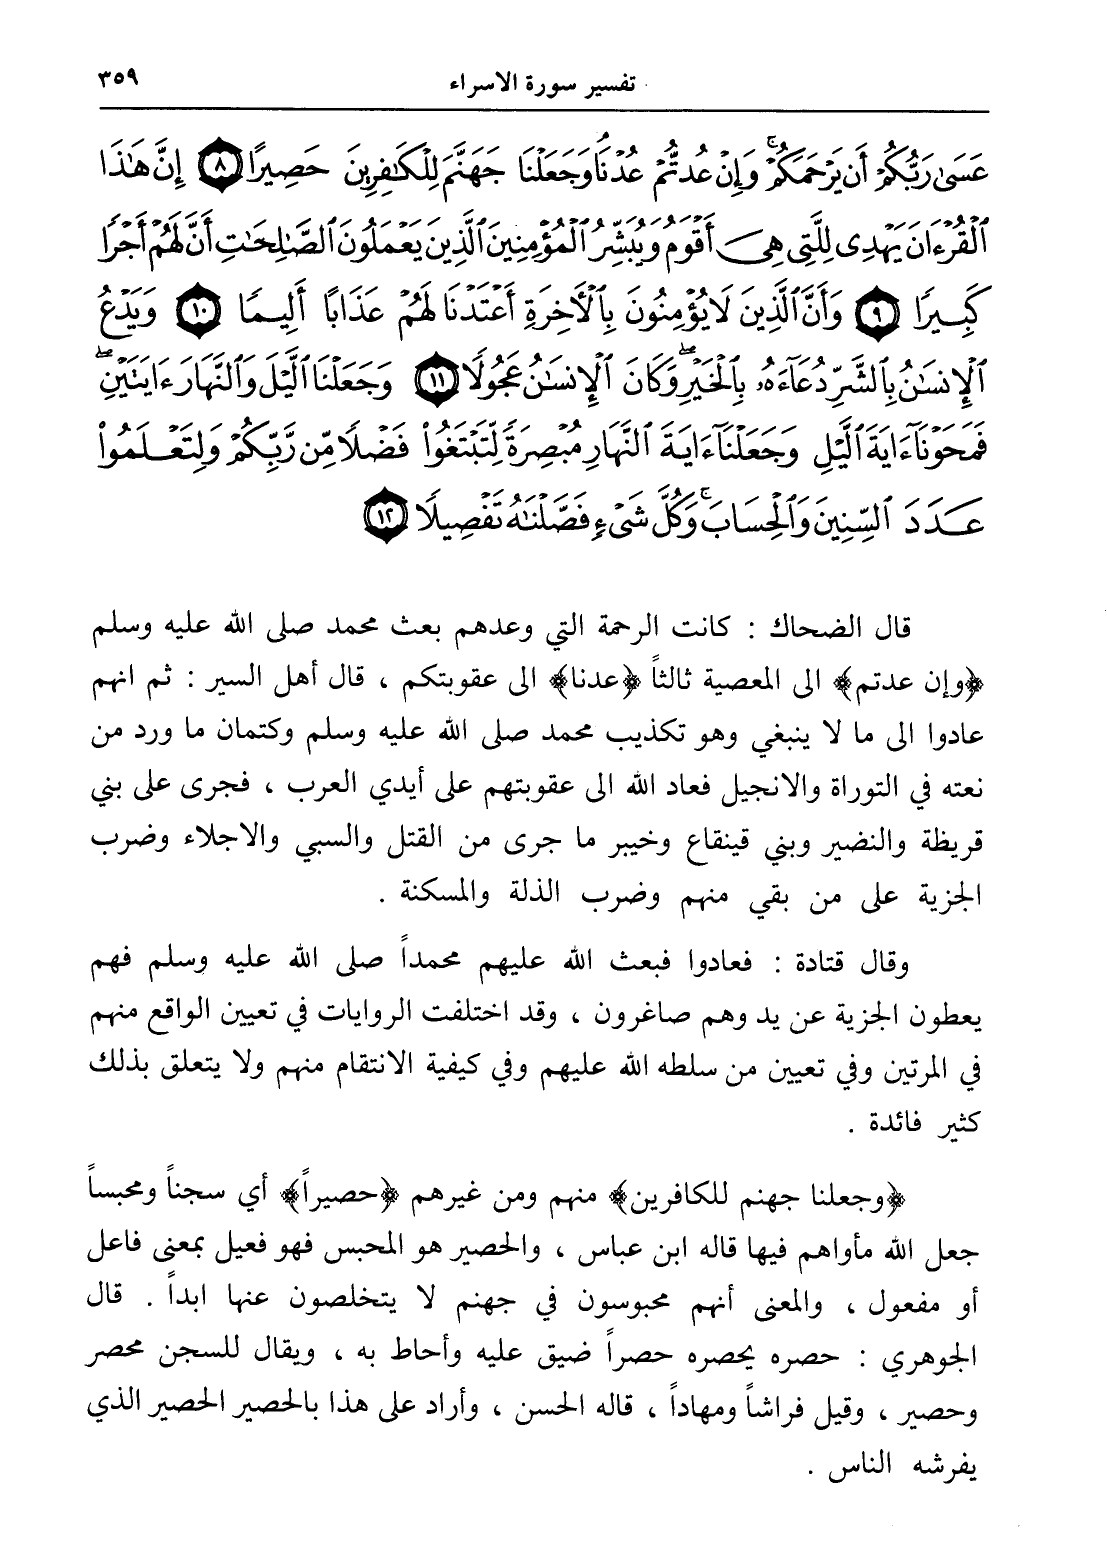 تفسير سورة الاسراء ٣٥٩
عَسَىٰ رَبُّكُمْ أَن يَرْحَمَكُمْ ۚ وَإِنْ عُدتُّمْ عُدْنَا ۘ وَجَعَلْنَا جَهَنَّمَ لِلْكَٰفِرِينَ حَصِيرًا ٨ إِنَّ هَٰذَا
ٱلْقُرْءَانَ يَهْدِى لِلَّتِى هِىَ أَقْوَمُ وَيُبَشِّرُ ٱلْمُؤْمِنِينَ ٱلَّذِينَ يَعْمَلُونَ ٱلصَّٰلِحَٰتِ أَنَّ لَهُمْ أَجْرًا
كَبِيرًا ٩ وَأَنَّ ٱلَّذِينَ لَا يُؤْمِنُونَ بِٱلْأَخِرَةِ أَعْتَدْنَا لَهُمْ عَذَابًا أَلِيمًا ١٠ وَيَدْعُ
ٱلْإِنسَٰنُ بِٱلشَّرِّ دُعَآءَهُۥ بِٱلْخَيْرِ ۖ وَكَانَ ٱلْإِنسَٰنُ عَجُولًا ١١ وَجَعَلْنَا ٱلَّيْلَ وَٱلنَّهَارَ ءَايَتَيْنِ ۖ
فَمَحَوْنَآ ءَايَةَ ٱلَّيْلِ وَجَعَلْنَآ ءَايَةَ ٱلنَّهَارِ مُبْصِرَةً لِّتَبْتَغُوا۟ فَضْلًا مِّن رَّبِّكُمْ وَلِتَعْلَمُوا۟
عَدَدَ ٱلسِّنِينَ وَٱلْحِسَابَ ۚ وَكُلَّ شَىْءٍ فَصَّلْنَٰهُ تَفْصِيلًا ١٢
قال الضحاك : كانت الرحمة التي وعدهم بعث محمد صلى الله عليه وسلم
﴿وإن عدتم﴾ الى المعصية ثالثاً ﴿عدنا﴾ الى عقوبتكم ، قال أهل السير : ثم انهم
عادوا الى ما لا ينبغي وهو تكذيب محمد صلى الله عليه وسلم وكتمان ما ورد من
نعته في التوراة والانجيل فعاد الله الى عقوبتهم على أيدي العرب ، فجرى على بني
قريظة والنضير وبني قينقاع وخيبر ما جرى من القتل والسبي والاجلاء وضرب
الجزية على من بقي منهم وضرب الذلة والمسكنة .
وقال قتادة : فعادوا فبعث الله عليهم محمداً صلى الله عليه وسلم فهم
يعطون الجزية عن يد وهم صاغرون ، وقد اختلفت الروايات في تعيين الواقع منهم
في المرتين وفي تعيين من سلطه الله عليهم وفي كيفية الانتقام منهم ولا يتعلق بذلك
كثير فائدة .
﴿وجعلنا جهنم للكافرين﴾ منهم ومن غيرهم ﴿حصيراً﴾ أي سجناً ومحبساً
جعل الله مأواهم فيها قاله ابن عباس ، والحصير هو المحبس فهو فعيل بمعنى فاعل
أو مفعول ، والمعنى أنهم محبوسون في جهنم لا يتخلصون عنها ابداً . قال
الجوهري : حصره يحصره حصراً ضيق عليه وأحاط به ، ويقال للسجن محصر
وحصير ، وقيل فراشاً ومهاداً ، قاله الحسن ، وأراد على هذا بالحصير الحصير الذي
يفرشه الناس .